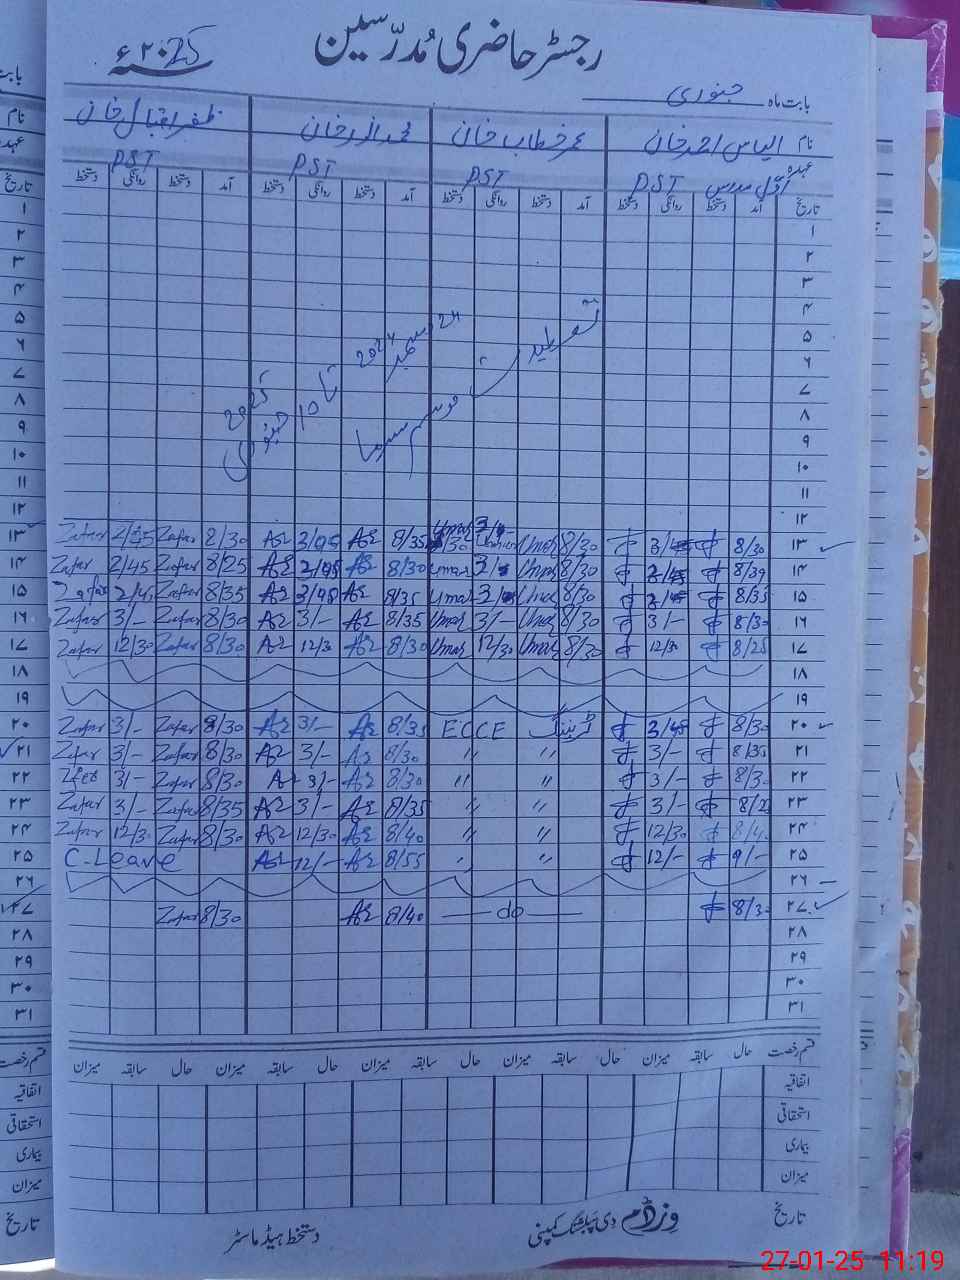 رجسٹر حاضری مُدرّسین
۲۰25ء
بابت ماہ جنوری
نام الیاس احمد خان عمر خطاب خان محمد انور خان ظفر اقبال خان
عہدہ اوّل مدرس PST PST PST PST
تاریخ آمد دستخط روانگی دستخط آمد دستخط روانگی دستخط آمد دستخط روانگی دستخط آمد دستخط روانگی دستخط
۱
۲
۳
۴
۵
۶
۷
۸
۹
۱۰
۱۱
۱۲
تعطیلات موسم سرما
24 دسمبر 2024 تا 10 جنوری 2025
۱۳ 8/30 3/45 8/30 Umar Umar 8/35 3/45 8/30 Zafar 2/45 Zafar
۱۴ 8/30 2/45 8/30 Umar Umar 8/30 2/45 8/25 Zafar 2/45 Zafar
۱۵ 8/35 2/45 8/30 Umar Umar 8/35 3/45 8/35 Zafar 2/45 Zafar
۱۶ 8/30 3/- 8/30 Umar 3/- Umar 8/35 3/- 8/30 Zafar 3/- Zafar
۱۷ 8/25 12/30 8/30 Umar 12/30 Umar 8/30 12/30 8/30 Zafar 12/30 Zafar
۱۸
۱۹
۲۰ 8/30 2/45 ٹریننگ ECCE 8/35 3/- 8/30 Zafar 3/- Zafar
۲۱ 8/35 3/- " " 8/30 3/- 8/30 Zafar 3/- Zafar
۲۲ 8/30 3/- " " 8/30 3/- 8/30 Zafar 3/- Zafar
۲۳ 3/- " " 8/35 3/- 8/35 Zafar 3/- Zafar
۲۴ 8/40 12/30 " " 8/40 12/30 8/30 Zafar 12/30 Zafar
۲۵ 9/- 12/- " " 8/55 12/- C-Leave
۲۶
۲۷ 8/30 do 8/40 8/30 Zafar
۲۸
۲۹
۳۰
۳۱
قسم رخصت حال سابقہ میزان حال سابقہ میزان حال سابقہ میزان حال سابقہ میزان
اتفاقیہ
استحقاقی
بیماری
میزان
تاریخ وزڈم دی پبلشنگ کمپنی دستخط ہیڈ ماسٹر
27-01-25 11:19